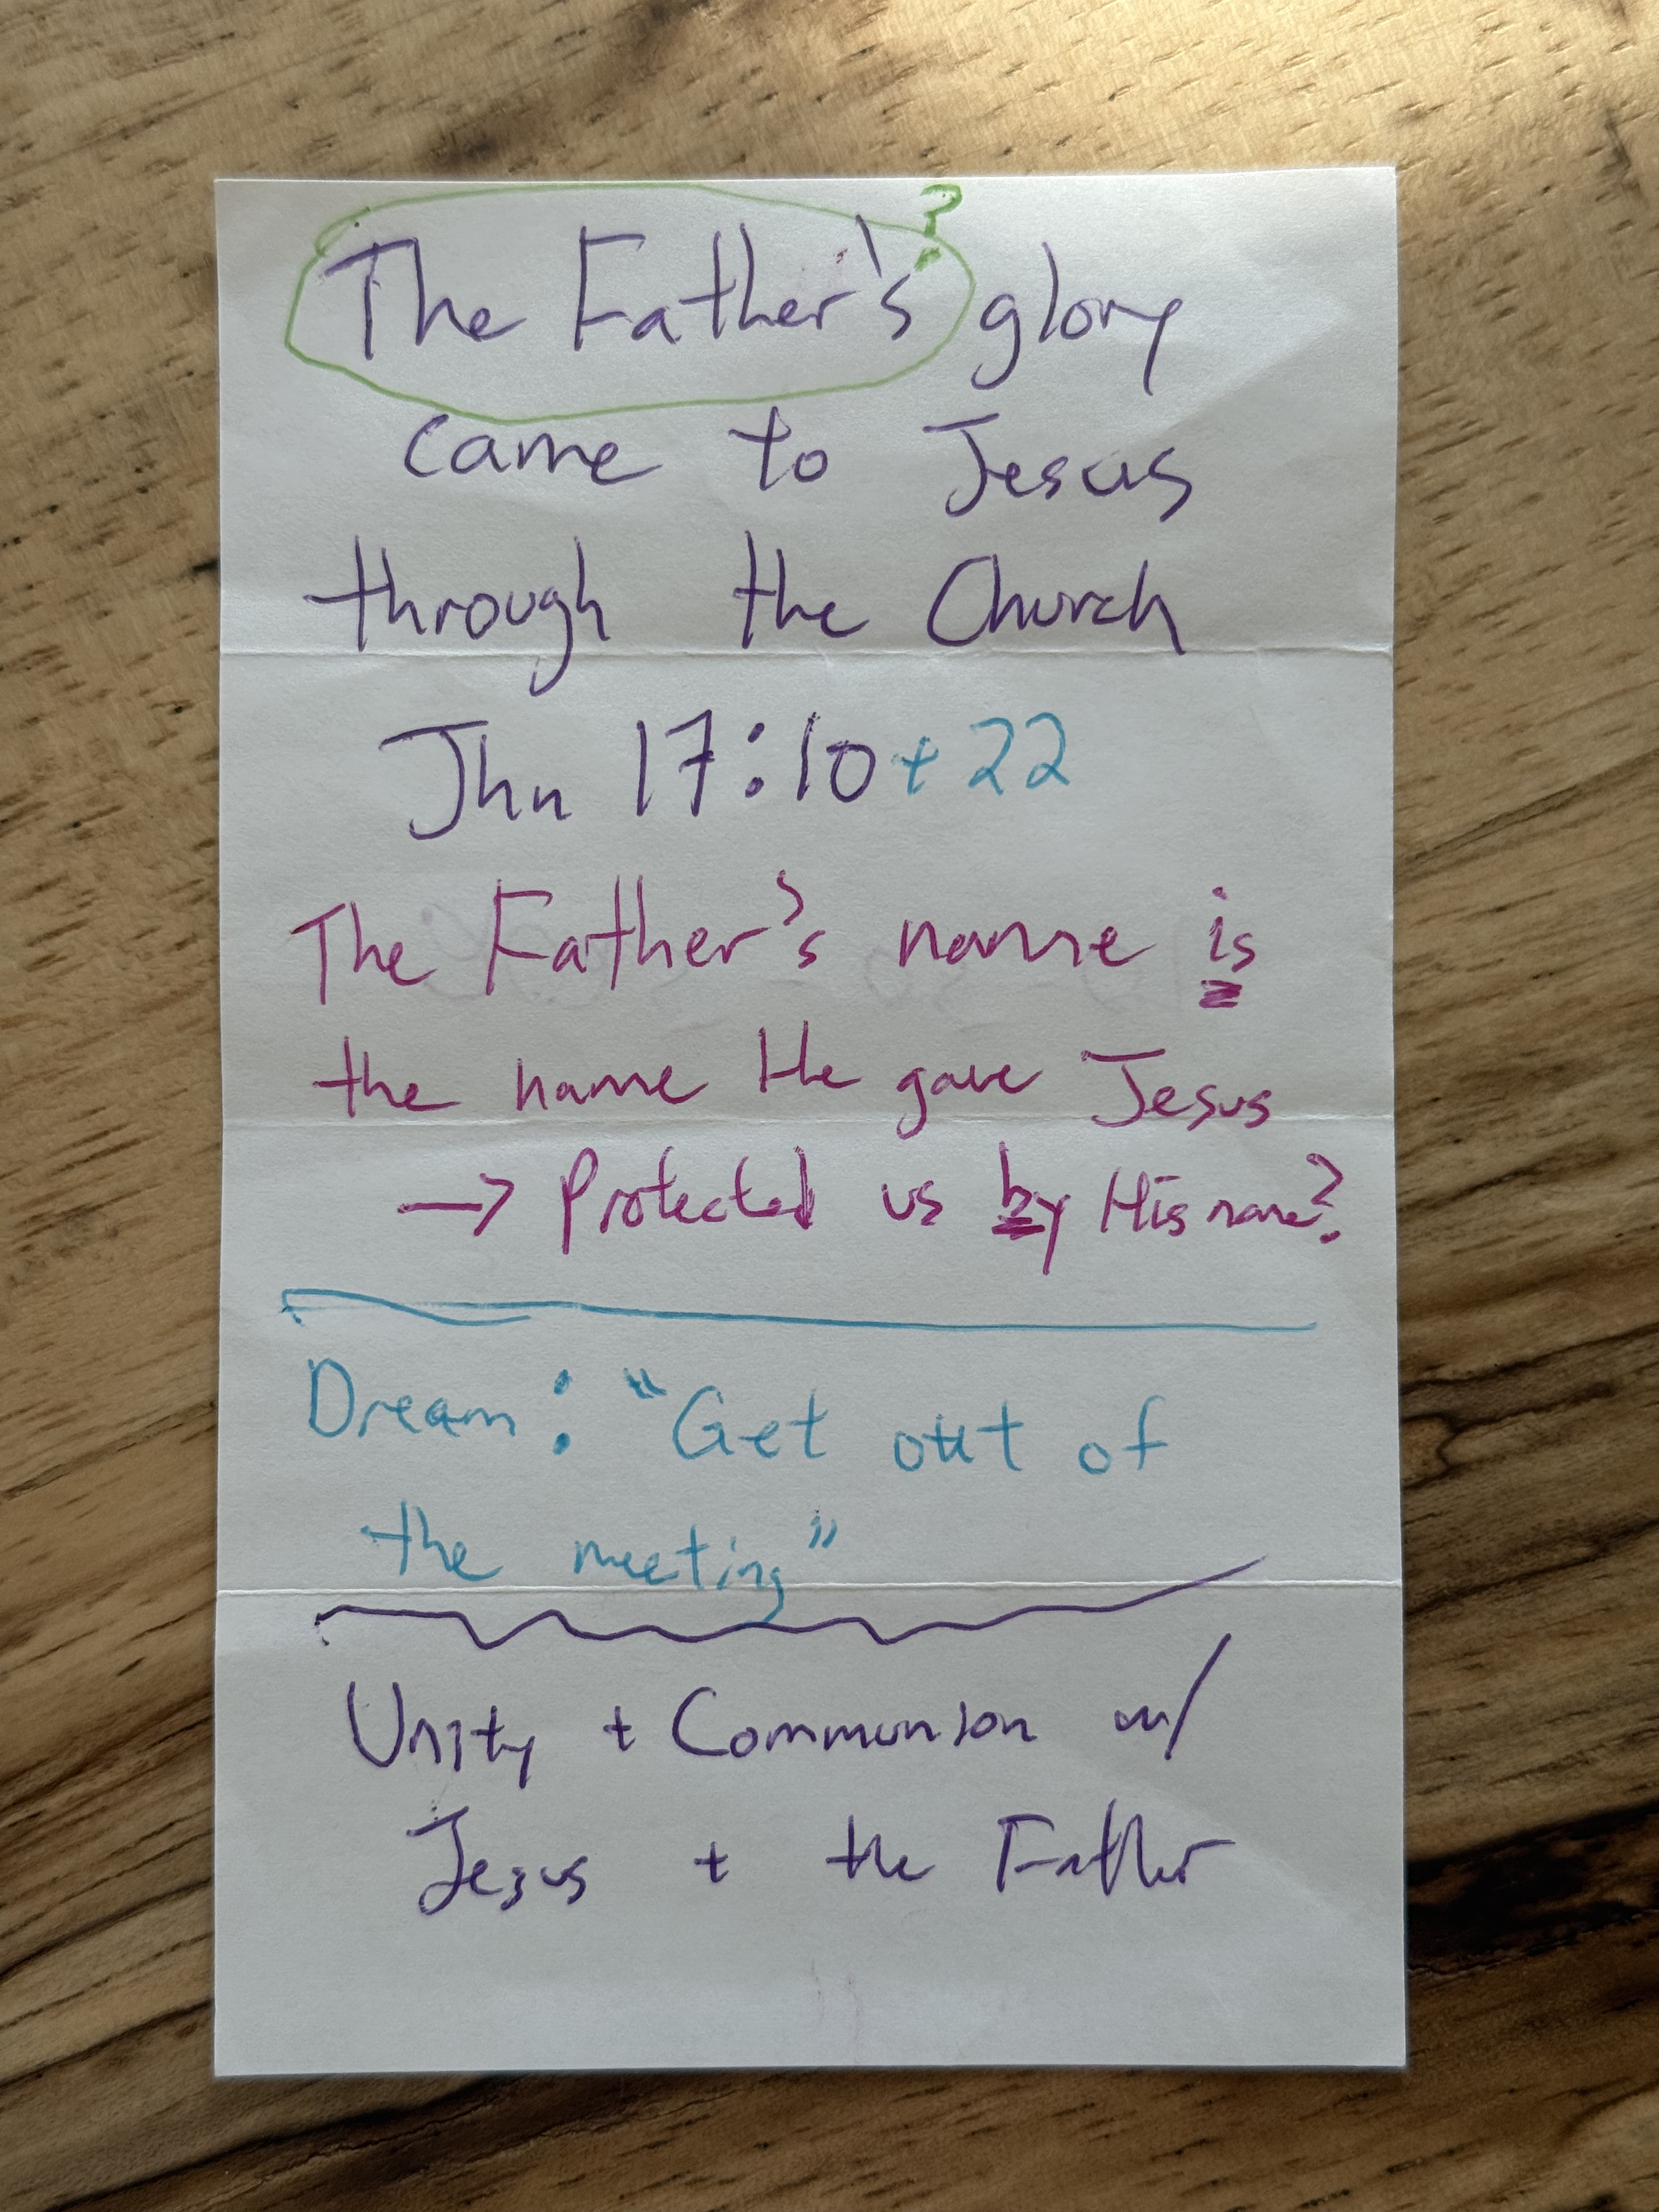 The Father's? glory
came to Jesus
through the Church
Jhn 17:10 + 22
The Father's name is
the name He gave Jesus
→ Protected us by His name?
Dream: "Get out of
the meeting"
Unity + Communion w/
Jesus + the Father